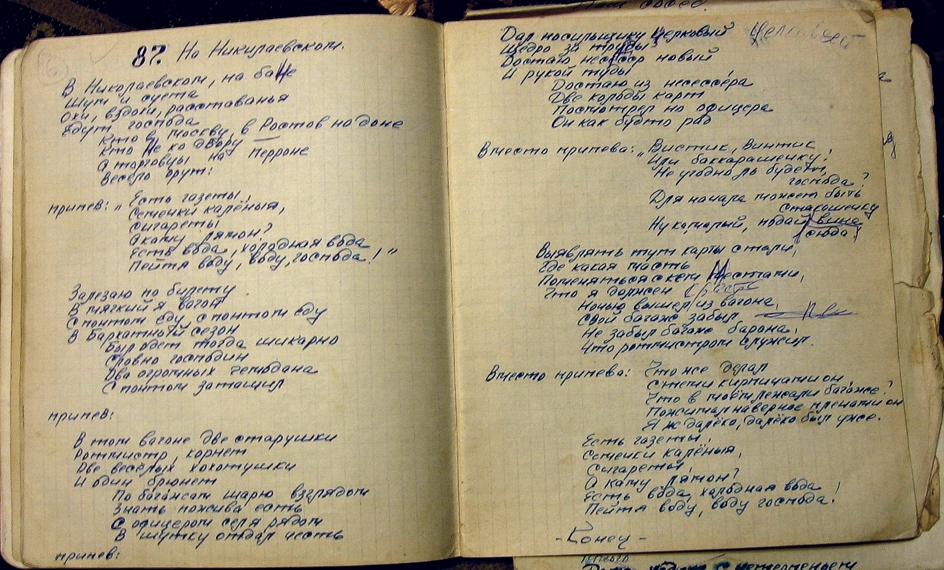 87. На Николаевском.
В Николаевском, на бане
Шум и суета
Охи, вздохи, расставанья
Едут господа
Кто в Москву, в Ростов на доне
Кто не ко двору
А торговцы на перроне
Весело орут:
припев: „Есть газеты,
Семечки калёныя,
Сигареты
А кому лимон?
Есть вода, холодная вода
Пейтя воду, воду, господа!"
Залезаю по билету
В мягкий я вагон
С понтом еду, с понтом еду
В Бархатный сезон
Был одет тогда шикарно
Словно господин
Два огромных чемодана
С понтом затащил
припев:
В том вагоне две старушки
Ротмистр, корнет
Две весёлых хохотушки
И один брюнет
По богансам шарю взглядом
Знать пожива есть
С офицером селя рядом
В шутку отдал честь
припев:
Дал носильщику целковый
Щедро за труды
Достаю несессер новый
И рукой туды
Достаю из несессера
Две колоды карт
Посмотрел на офицера
Он как будто рад
Вместо припева: „Вистик, Винтик
Или баккарашечку?
Не угодно ль будет,
господа?
Для начала может быть
стакашечку
Ну копытый, подай вина
сюда!
Выявлять тут карты стали,
Где какая масть
Поменяться с кем местами,
Что я должен
Ночью вышел из вагона,
Свой багаж забыл
Не забыл багаж барона,
Что ротмистром служил.
Вместо припева: Что же делал
С теми кирпичами он,
Что в моём лежали багаже?
Пожимал наверное плечами он
Я ж далёко, далёко был уже.
Есть газеты,
Семечки калёныя,
Сигареты,
А кому лимон?
Есть вода, холодная вода
Пейтя воду, воду господа!
- Конец -